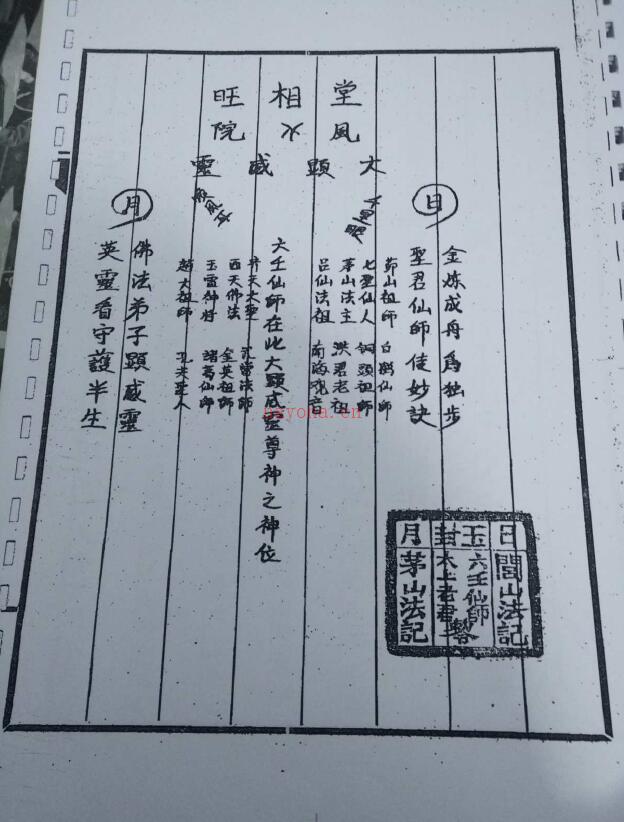 堂相旺
風火院
大顯威靈
日
月
金炼成舟為独步
聖君仙師佳妙訣
茆山祖師 白鹤仙師
七聖仙人 铜頭祖師
茅山法主 洪君老祖
吕仙法祖 南海观音
六壬仙師在此大顕威靈尊神之神位
齐天大聖 雷法師
西天佛法 金英祖師
玉雷神将 諸葛仙師
趙大祖師 孔夫聖人
佛法弟子顕威靈
英靈看守護半生
日 閭山法記
玉 六壬仙師
封 太上老君
月 茅山法記